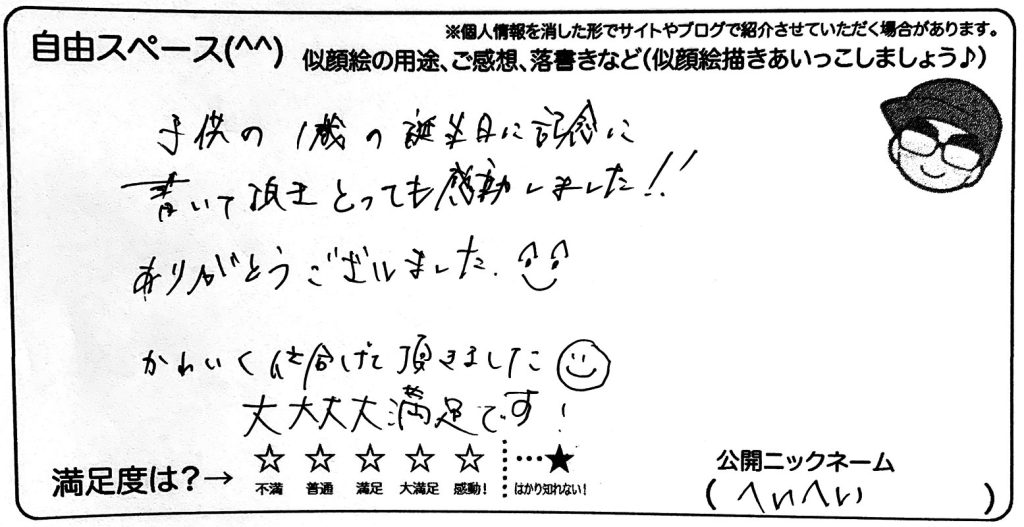 ※個人情報を消した形でサイトやブログで紹介させていただく場合があります。
自由スペース(^^)
似顔絵の用途、ご感想、落書きなど(似顔絵描きあいっこしましょう♪)
子供の1歳の誕生日に記念に
書いて頂きとっても感動しました!!
ありがとうございました。
かわいく仕上げて頂きました
大大大大満足です!
満足度は?→ ☆ ☆ ☆ ☆ ☆ …★
不満 普通 満足 大満足 感動! はかり知れない!
公開ニックネーム
(へいへい)